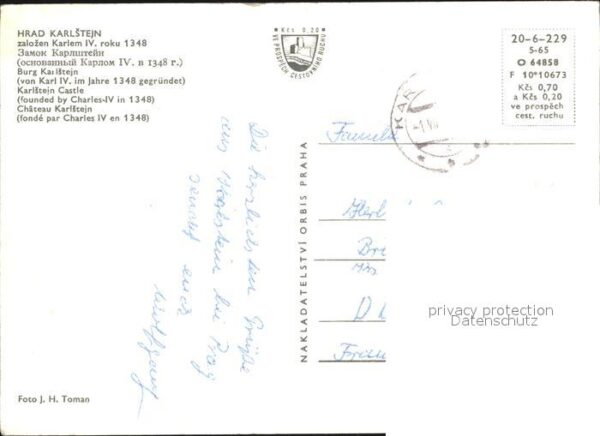 HRAD KARLŠTEJN
založen Karlem IV. roku 1348
Замок Карлштейн
(основанный Карлом IV. в 1348 г.)
Burg Karlštejn
(von Karl IV. im Jahre 1348 gegründet)
Karlštejn Castle
(founded by Charles-IV in 1348)
Château Karlštejn
(fondé par Charles IV en 1348)
Kčs 0,20
VE PROSPĚCH CESTOVNÍHO RUCHU
20-6-229
S-65
O 64858
F 10*10673
Kčs 0,70
a Kčs 0,20
ve prospěch
cest. ruchu
KAR
Die herzlichsten Grüße
aus Karlstein bei Prag
sendet euch
NAKLADATELSTVÍ ORBIS PRAHA
Familie
privacy protection
Datenschutz
Foto J. H. Toman